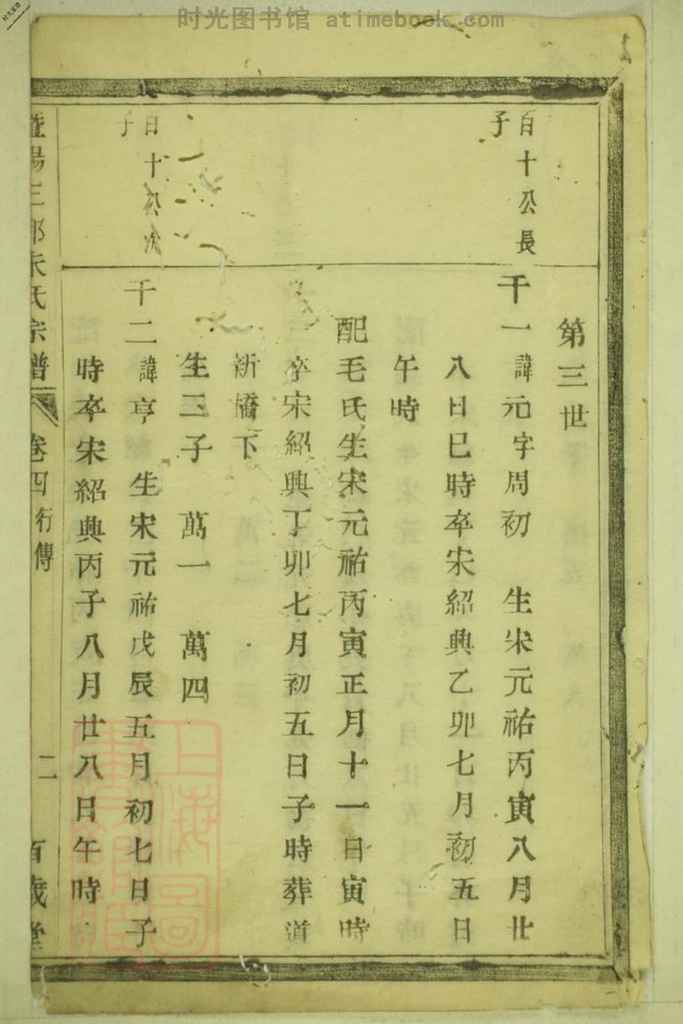 时光图书馆 atimebook.com
第三世
百十公長
子
千一 諱元字周初 生宋元祐丙寅八月廿
八日巳時卒宋紹興乙卯七月初五日
午時
配毛氏生宋元祐丙寅正月十一日寅時
卒宋紹興丁卯七月初五日子時葬道
新橋下
生三子 萬一 萬四
百十公次
子
千二 諱亨 生宋元祐戊辰五月初七日子
時卒宋紹興丙子八月廿八日午時
暨陽三郎朱氏宗譜 卷四 行傳 二 百歲堂